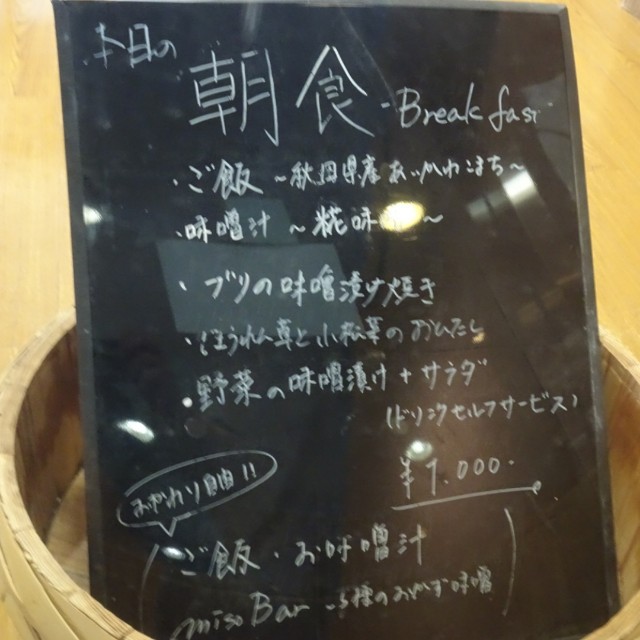 本日の
朝食 -Breakfast-
・ご飯 ～秋田県産あいかわこまち～
・味噌汁 ～糀味噌～
・ブリの味噌漬け焼き
・ほうれん草と小松菜のおひたし
・野菜の味噌漬け + サラダ
(ドリンクセルフサービス)
¥1.000.
おかわり自由!!
ご飯・お味噌汁
miso Bar -5種のおかず味噌